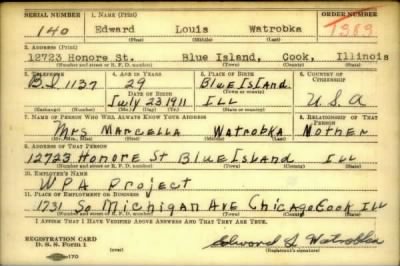 SERIAL NUMBER 1. NAME (Print) ORDER NUMBER
140 Edward Louis Watrobka 1989
(First) (Middle) (Last)
2. ADDRESS (Print)
12723 Honore St. Blue Island, Cook, Illinois
(Number and street or R. F. D. number) (Town) (County) (State)
3. TELEPHONE 4. AGE IN YEARS 5. PLACE OF BIRTH 6. COUNTRY OF CITIZENSHIP
B.I 1137 29 Blue Island.
DATE OF BIRTH (Town or county)
July 23 1911 ILL U.S.A
(Exchange) (Number) (Mo.) (Day) (Yr.) (State or country)
7. NAME OF PERSON WHO WILL ALWAYS KNOW YOUR ADDRESS 8. RELATIONSHIP OF THAT PERSON
Mrs Marcella Watrobka Mother
(Mr., Mrs., Miss) (First) (Middle) (Last)
9. ADDRESS OF THAT PERSON
12723 Honore St Blue Island ILL
(Number and street or R. F. D. number) (Town) (County) (State)
10. EMPLOYER'S NAME
WPA Project
11. PLACE OF EMPLOYMENT OR BUSINESS
1731 So Michigan Ave Chicago Cook ILL
(Number and street or R. F. D. number) (Town) (County) (State)
I AFFIRM THAT I HAVE VERIFIED ABOVE ANSWERS AND THAT THEY ARE TRUE.
REGISTRATION CARD
D. S. S. Form 1 (over) Edward L Watrobka
(Registrant's signature)